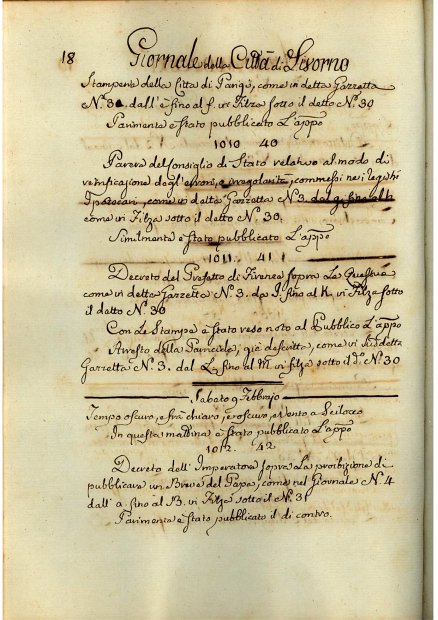 18 Giornale della Città di Livorno
Stamperie della Città di Parigi, come in detta Gazzetta
N.º 3. dall' e fino al f. in Filza sotto il detto N.º 30
Parimente è stato pubblicato L'app.o
1010 40
Parere del Consiglio di Stato relativo al modo di
verificazione degl'errori, e irregolarità, commessi nei registri
Ipotecarj, come in detta Gazzetta N.º 3. dal g. fino al h
come in Filza sotto il detto N.º 30.
Similmente è stato pubblicato L'app.o
1011. 41
Decreto del Prefetto di Firenze sopra La Questua
come in detta Gazzetta N.º 3. da I. fino al K. in Filza sotto
il detto N.º 30
Con Le Stampe è stato reso noto al Pubblico L'app.o
Arresto della già descritta, come in detta
Gazzetta N.º 3. dal L. fino al M. in filza sotto il d.º N.º 30
Sabato 9 Febbrajo
Tempo oscuro, e frà chiaro, e oscuro, e vento a Scilocco
In questa mattina è stato pubblicato L'app.o
1012. 42
Decreto dell' Imperatore sopra La proibizione di
pubblicare un Breve del Papa, come nel Giornale N.º 4
dall' a. fino al B. in Filza sotto il N.º 31
Parimente è stato pubblicato il di contro.